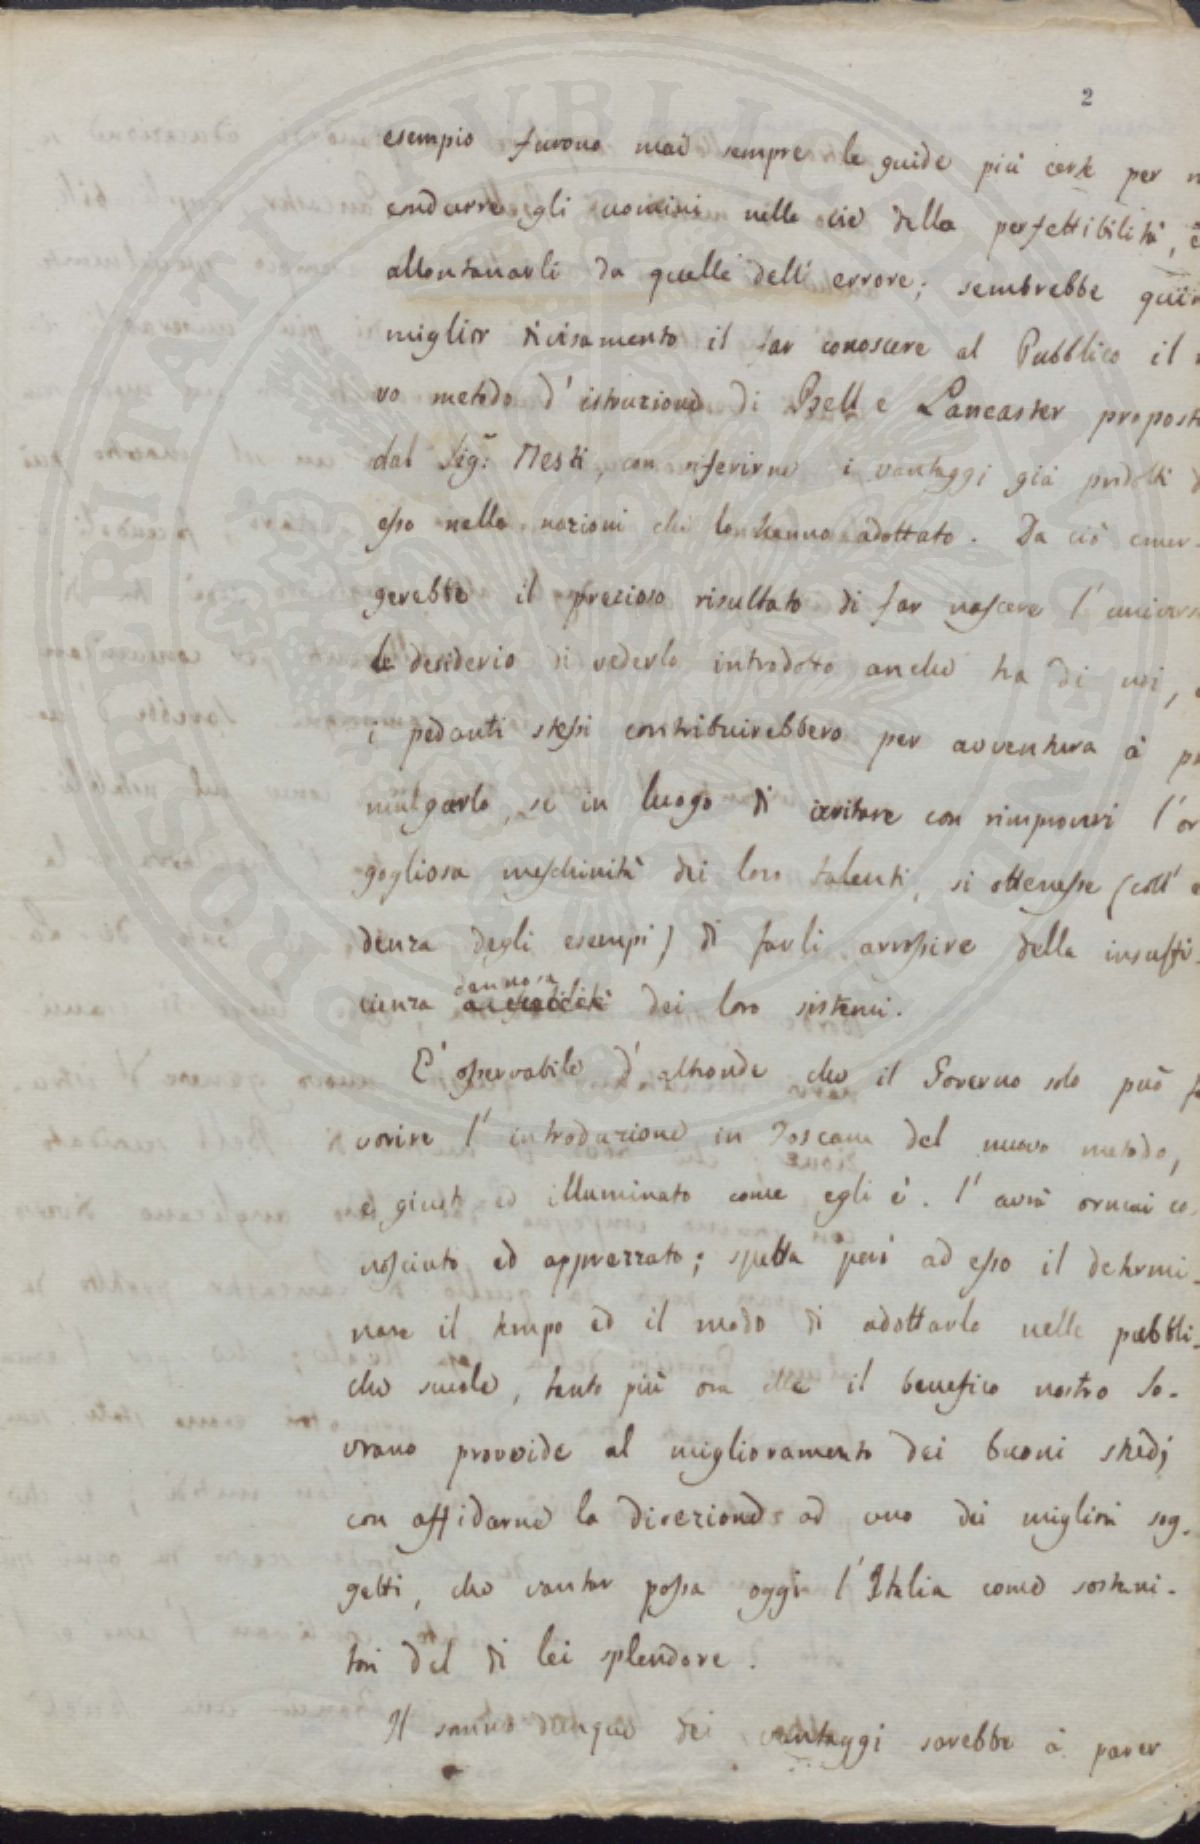 2
esempio furono mai sempre le guide più certe per
condurre gli uomini nelle vie della perfettibilità, e
allontanarli da quelle dell' errore; sembrebbe quin
miglior divisamento il far conoscere al Pubblico il
vo metodo d' istruzione di Bell e Lancaster propost
dal Sig.r Nesti, con riferirne i vantaggi già prodotti d
esso nelle nazioni che lo hanno adottato. Da ciò emer-
gerebbe il prezioso risultato di far nascere l' univers
le desiderio di vederlo introdotto anche tra di noi,
i pedanti stessi contribuirebbero per avventura à pro
mulgarlo, se in luogo di irritare con rimproveri l' or
gogliosa meschinità dei loro talenti, si ottenesse (coll' e
denza degli esempi) di farli arrossire della insuffi-
dannosa
cienza dei loro sistemi.
E' osservabile d' altronde che il Governo solo può fa
vorire l' introduzione in Toscana del nuovo metodo,
e giusto ed illuminato come egli è. l' avrà ormai co-
nosciuto ed apprezzato; spetta però ad esso il determi-
nare il tempo ed il modo di adottarlo nelle pubbli-
che scuole, tanto più ora che il benefico nostro So-
vrano provvide al miglioramento dei buoni studj
con affidarne la direzione ad uno dei migliori sog-
getti, che vantar possa oggi l' Italia come sosteni-
tori del di lei splendore.
Il sommo dunque dei vantaggi sarebbe à parer
PROSPERITATI PUBLICAE AUGENDAE